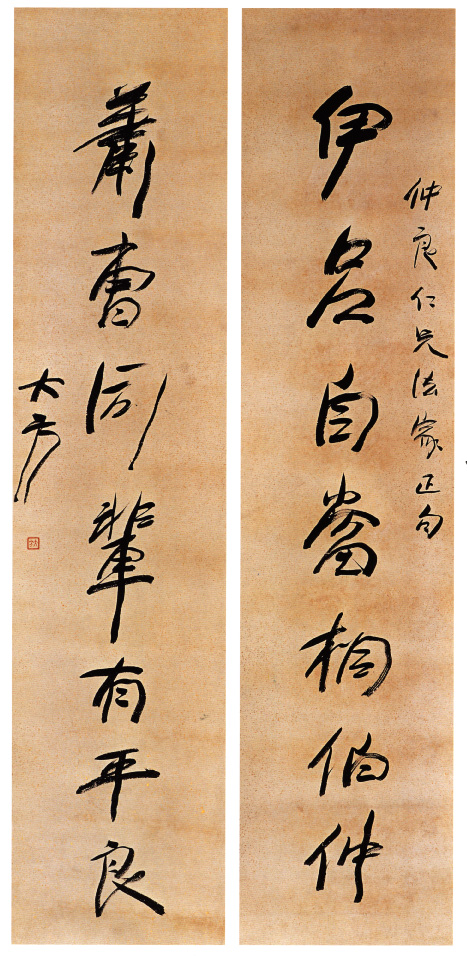 仲良仁兄法家正句
伊呂自當相伯仲
蕭曹同輩有平良
大方